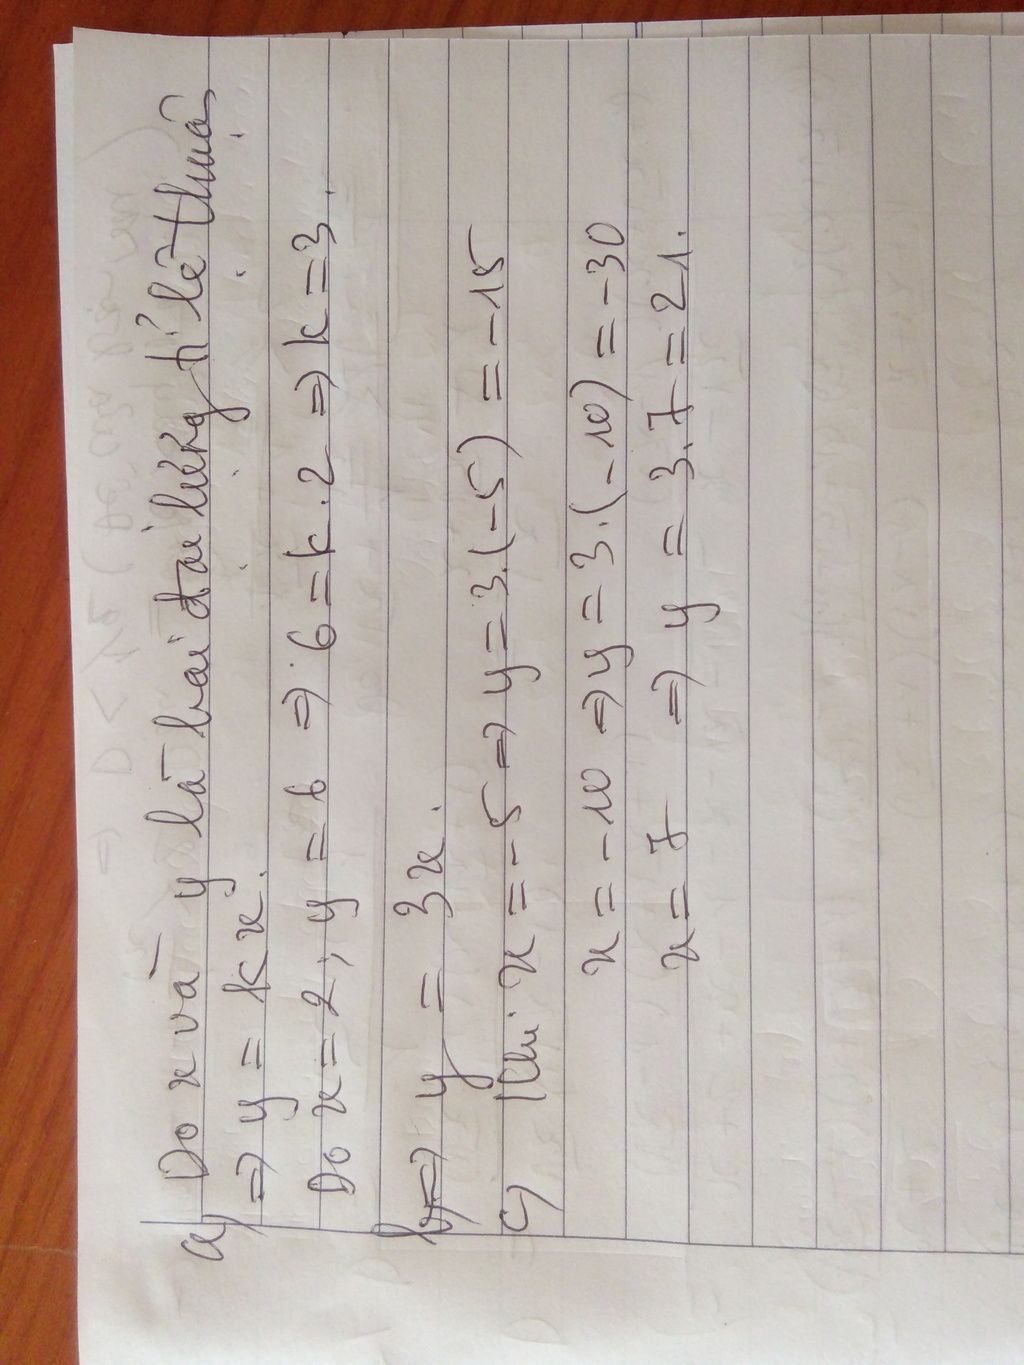 a) Do x và y là hai đại lượng tỉ lệ thuận
=> y = kx.
Do x = 2, y = 6 => 6 = k.2 => k = 3.
b) => y = 3x.
c) Khi x = -5 => y = 3.(-5) = -15
x = -10 => y = 3.(-10) = -30
x = 7 => y = 3.7 = 21.